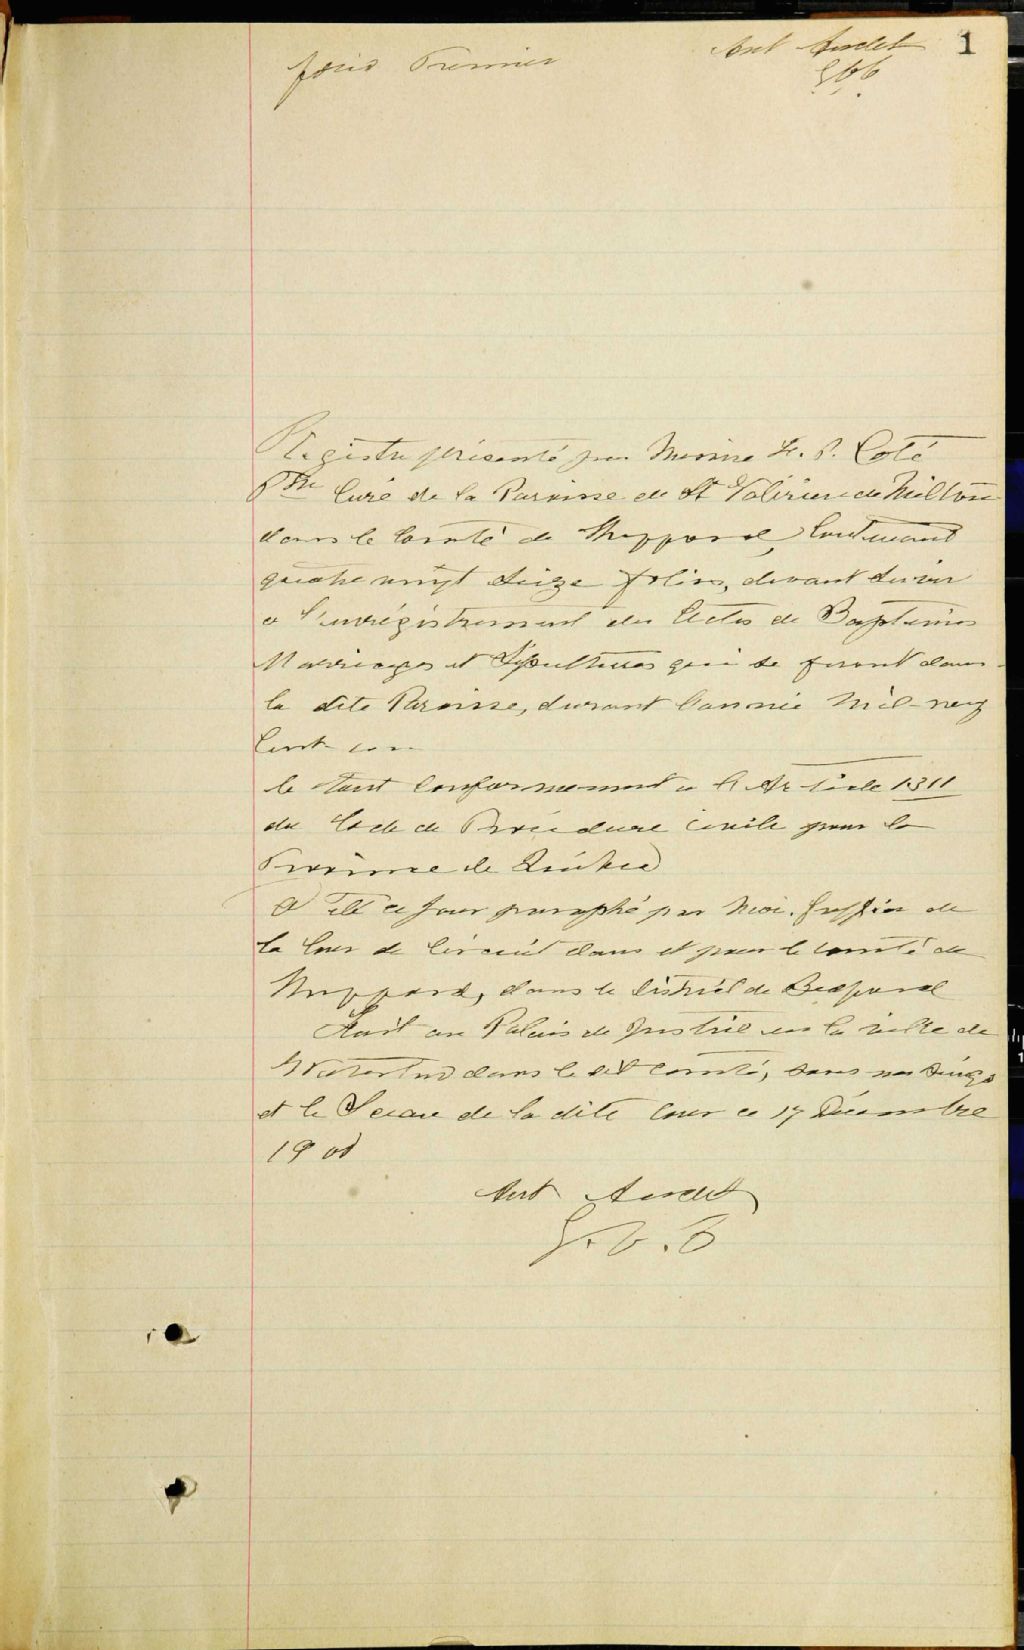 folio Premier
Ant Audet
G.C.C
1
Registre présenté par Messire F. P. Coté
Ptre Curé de la Paroisse de St Valérien de Milton
dans le Comté de Shefford, Contenant
quatre vingt seize folios, devant servir
a l'enrégistrement des Actes de Baptêmes
Marriages et Sépultures qui se feront dans
la dite Paroisse, durant l'année Mil-neuf
Cent-un
le tout Conformement a l'Article 1311
du Code de Procédure Civile pour la
Province de Québec
A été ce jour paraphé par Moi, Greffier de
la Cour de Circuit dans et pour le comté de
Shefford, dans le District de Bedford
Fait au Palais de Justice en la ville de
Waterloo dans le dit comté, sous mon Seing
et le Sceau de la dite Cour ce 17 Décembre
1900
Ant Audet
G.C.C